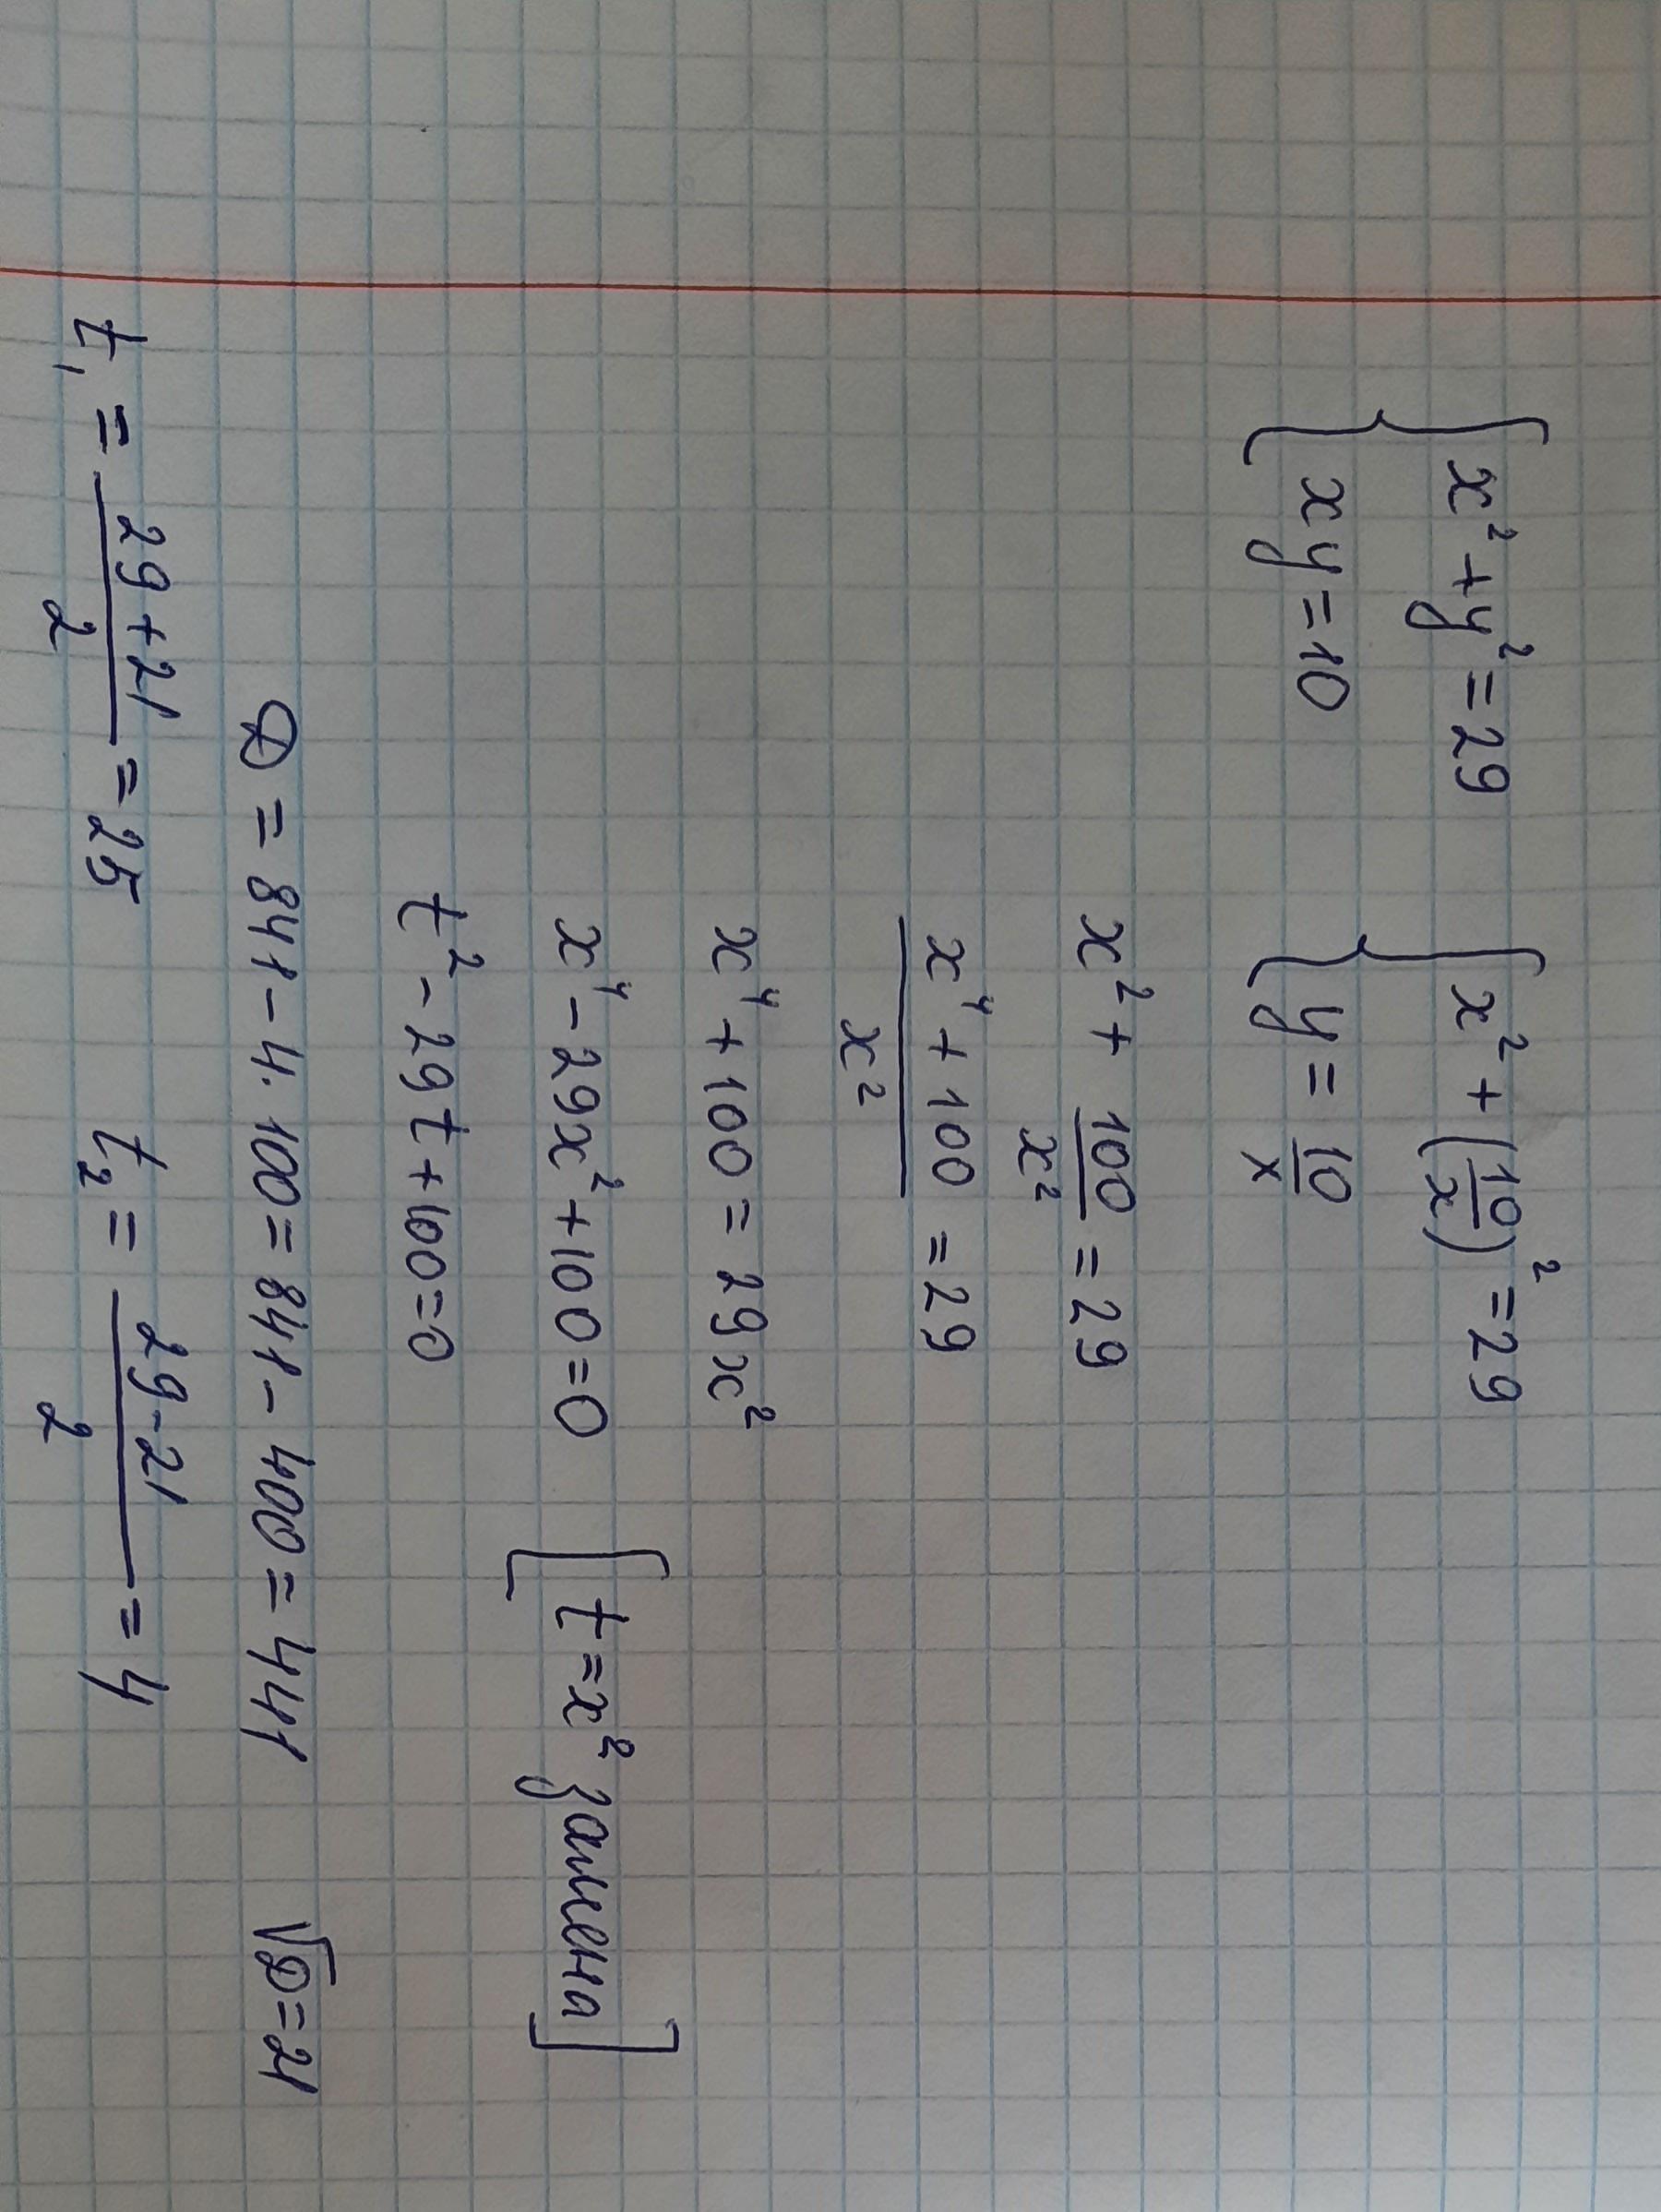 { x² + y² = 29 { x² + (10/x)² = 29
{ xy = 10 { y = 10/x
x² + 100/x² = 29
(x⁴ + 100)/x² = 29
x⁴ + 100 = 29x²
x⁴ - 29x² + 100 = 0 [t = x² замена]
t² - 29t + 100 = 0
D = 841 - 4·100 = 841 - 400 = 441 √D = 21
t₁ = (29 + 21)/2 = 25 t₂ = (29 - 21)/2 = 4